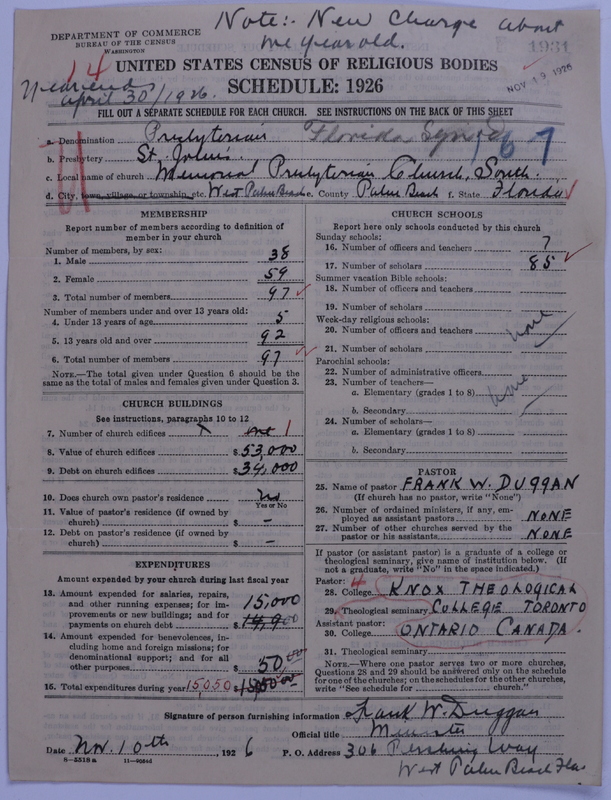 Note:- New Charge about
one year old.
DEPARTMENT OF COMMERCE
BUREAU OF THE CENSUS
WASHINGTON
1931
14
UNITED STATES CENSUS OF RELIGIOUS BODIES
SCHEDULE: 1926
NOV 19 1926
April 30/1926.
FILL OUT A SEPARATE SCHEDULE FOR EACH CHURCH. SEE INSTRUCTIONS ON THE BACK OF THIS SHEET
a. Denomination Presbyterian Florida Synod 167
b. Presbytery St. Johns.
c. Local name of church Memorial Presbyterian Church, South.
d. City, town, village, or township, etc. West Palm Beach e. County Palm Beach f. State Florida
MEMBERSHIP
Report number of members according to definition of
member in your church
Number of members, by sex:
1. Male 38
2. Female 59
3. Total number of members 97
Number of members under and over 13 years old:
4. Under 13 years of age 5
5. 13 years old and over 92
6. Total number of members 97
NOTE.—The total given under Question 6 should be the
same as the total of males and females given under Question 3.
CHURCH BUILDINGS
See instructions, paragraphs 10 to 12
7. Number of church edifices one 1
8. Value of church edifices $ 53,000
9. Debt on church edifices $ 34,000
10. Does church own pastor's residence No
Yes or No
11. Value of pastor's residence (if owned by
church) $ -
12. Debt on pastor's residence (if owned by
church) $ -
EXPENDITURES
Amount expended by your church during last fiscal year
13. Amount expended for salaries, repairs,
and other running expenses; for im-
provements or new buildings; and for
payments on church debt $ 15,000
14. Amount expended for benevolences, in-
cluding home and foreign missions; for
denominational support; and for all
other purposes $ 50.00
15. Total expenditures during year 15,050 $
CHURCH SCHOOLS
Report here only schools conducted by this church
Sunday schools:
16. Number of officers and teachers 7
17. Number of scholars 85
Summer vacation Bible schools:
18. Number of officers and teachers
19. Number of scholars
Week-day religious schools:
20. Number of officers and teachers none
21. Number of scholars
Parochial schools:
22. Number of administrative officers
23. Number of teachers—
a. Elementary (grades 1 to 8) none
b. Secondary
24. Number of scholars—
a. Elementary (grades 1 to 8)
b. Secondary
PASTOR
25. Name of pastor FRANK W. DUGGAN
(If church has no pastor, write "None")
26. Number of ordained ministers, if any, em-
ployed as assistant pastors NONE
27. Number of other churches served by the
pastor or his assistants NONE
If pastor (or assistant pastor) is a graduate of a college or
theological seminary, give name of institution below. (If
not a graduate, write "No" in the space indicated.)
Pastor: 4
28. College KNOX THEOLOGICAL
29. Theological seminary COLLEGE TORONTO
Assistant pastor:
30. College ONTARIO CANADA.
31. Theological seminary
NOTE.—Where one pastor serves two or more churches,
Questions 28 and 29 should be answered only on the schedule
for one of the churches; on the schedules for the other churches,
write "See schedule for church."
Signature of person furnishing information Frank W. Duggan
Official title Minister
Date Nov. 10th 1926 P. O. Address 306 Pershing Way
8-5518a 11-9054d West Palm Beach Fla